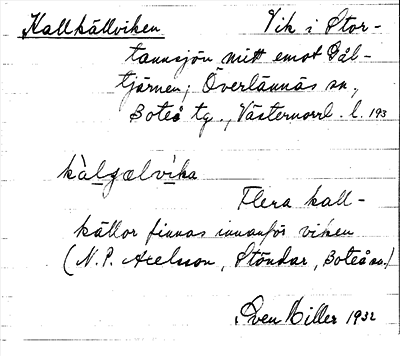 Kallkällviken Vik i Stor-
tannsjön mitt emot Dål-
tjärnen; Överlännäs sn,
Boteå tg., Västernorrl. l. 193
kàlgælvika
Flera kall-
källor finnas innanför viken
(N. P. Axelsson, Stöndar, Boteå sn.)
Sven Hiller 1932